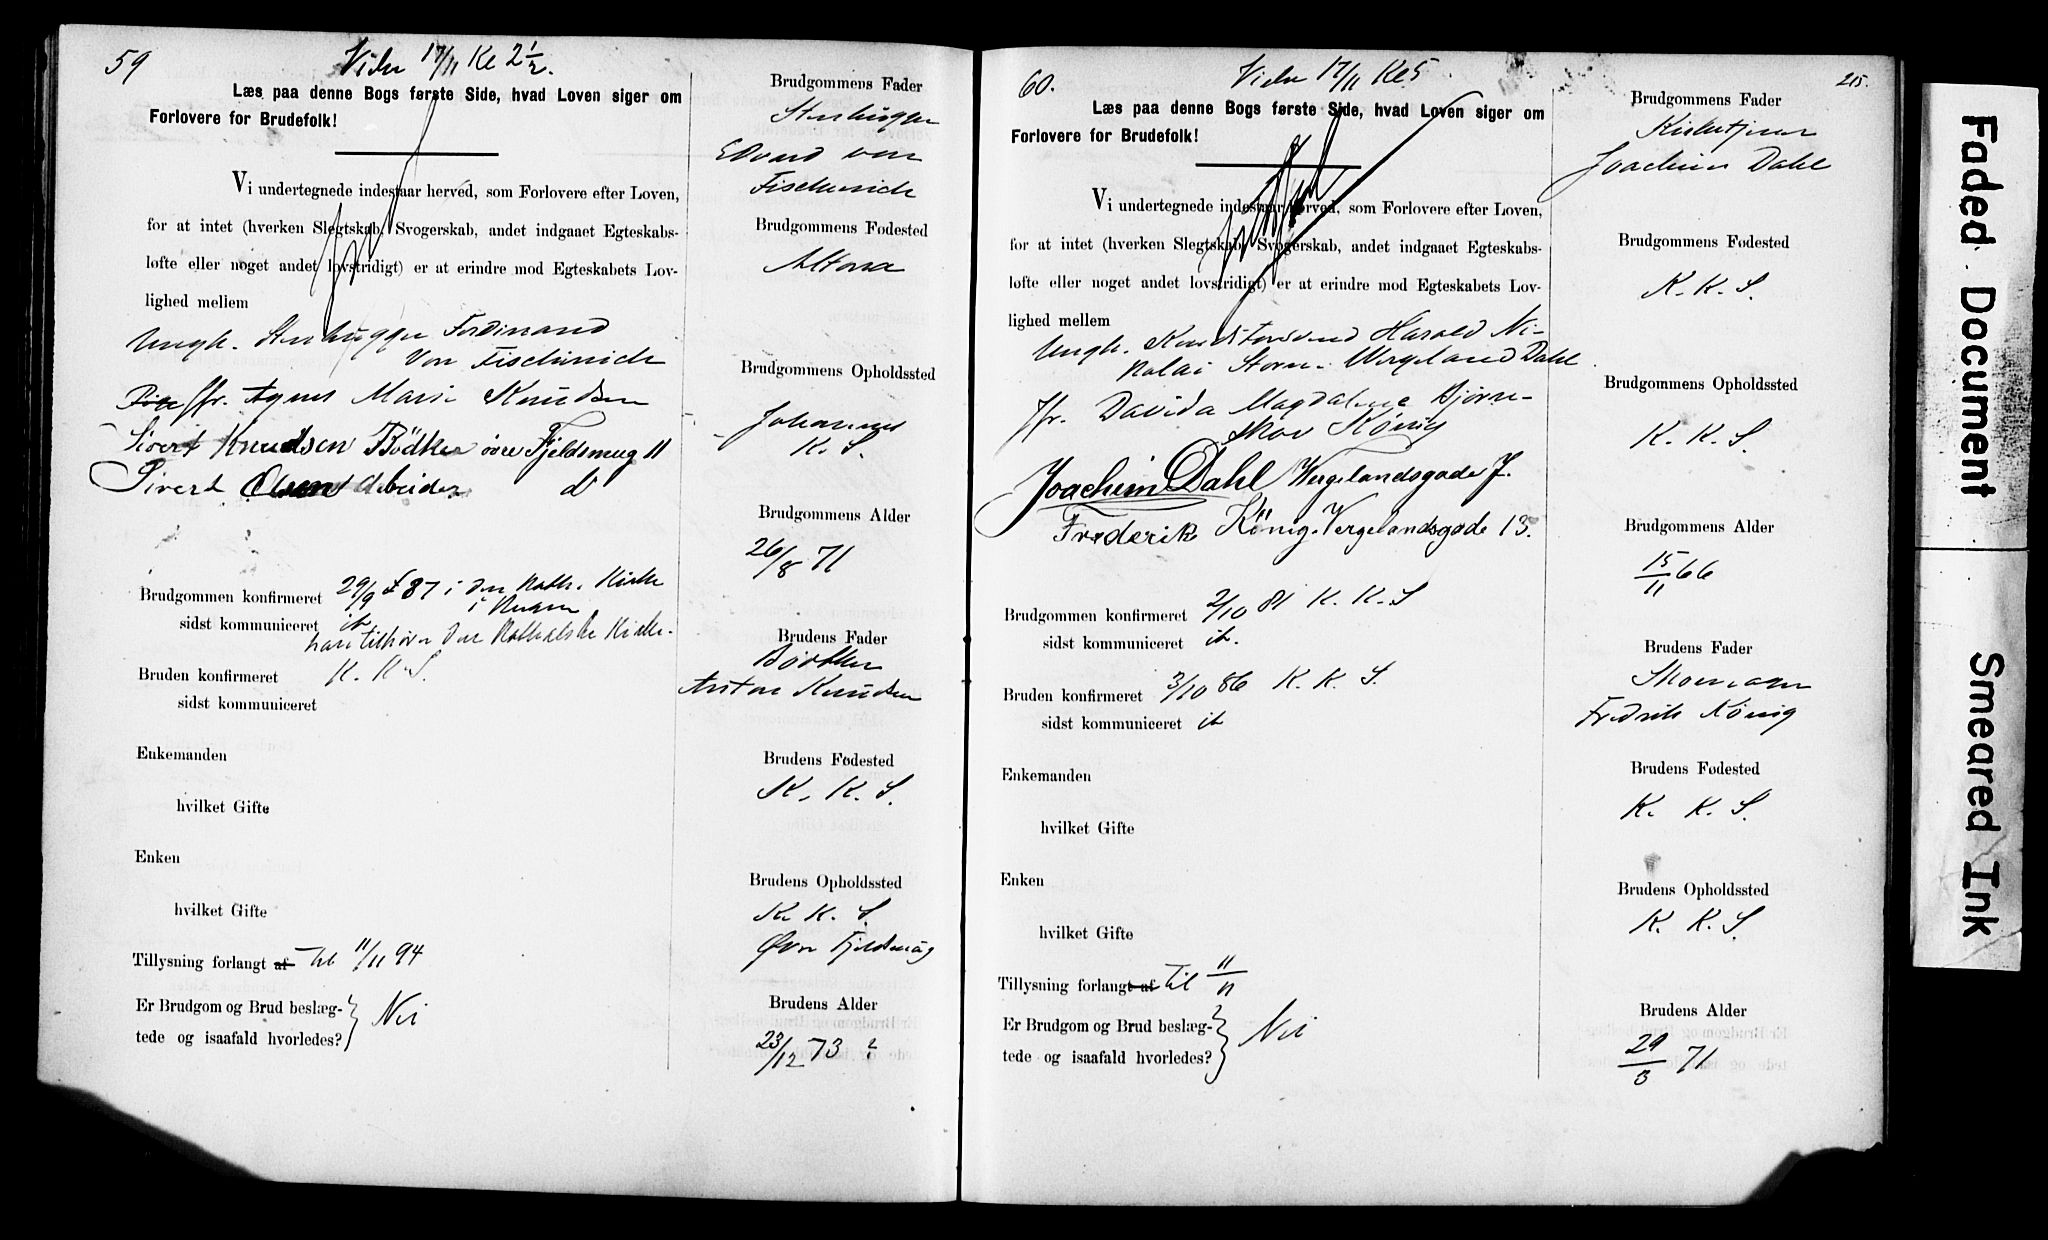 59
Vides 17/11 Kl 2 1/2.
Læs paa denne Bogs første Side, hvad Loven siger om
Forlovere for Brudefolk!
Vi undertegnede indestaar herved, som Forlovere efter Loven,
for at intet (hverken Slegtskab, Svogerskab, andet indgaaet Egteskabs-
løfte eller noget andet lovstridigt) er at erindre mod Egteskabets Lov-
lighed mellem
Ungk. Stenhugger Ferdinand
Von Fischnich
Pfr. Agnes Marie Knudsen
Sivert Knudsen Bödker övre Fjeldsmug 11
Sivert Olsen Arbeider do
Brudgommen konfirmeret 29/9 87 i den Kath. Kirke
i
sidst kommuniceret
han tilhører den Katholske Kirke.
Bruden konfirmeret K. K. S.
sidst kommuniceret
Enkemanden
hvilket Gifte
Enken
hvilket Gifte
Tillysning forlangt af til 11/11 94
Er Brudgom og Brud beslæg-
tede og isaafald hvorledes? Nei
Brudgommens Fader
Stenhugger
Edvard von
Fischnich
Brudgommens Fødested
Altona
Brudgommens Opholdssted
Johannes
K. S.
Brudgommens Alder
26/8 71
Brudens Fader
Bødker
Anton Knudsen
Brudens Fødested
K. K. S.
Brudens Opholdssted
K. K. S.
Øvre Fjeldsmug
Brudens Alder
23/12 73 ?
60.
Vides 17/11 Kl 5
215.
Læs paa denne Bogs første Side, hvad Loven siger om
Forlovere for Brudefolk!
Vi undertegnede indestaar herved, som Forlovere efter Loven,
for at intet (hverken Slegtskab, Svogerskab, andet indgaaet Egteskabs-
løfte eller noget andet lovstridigt) er at erindre mod Egteskabets Lov-
lighed mellem
Ungk. Harald Ni-
kolai Storm Wergeland Dahl
Jfr. Davida Magdalene Bjørne-
skov König
Joachim Dahl Wergelandsgade 7.
Frederik König Vergelandsgade 13.
Brudgommen konfirmeret 2/10 81 K. K. S
sidst kommuniceret it.
Bruden konfirmeret 3/10 86 K. K. S.
sidst kommuniceret it
Enkemanden
hvilket Gifte
Enken
hvilket Gifte
Tillysning forlangt af til 11/11
Er Brudgom og Brud beslæg-
tede og isaafald hvorledes? Nei
Brudgommens Fader
Kirketjener
Joachim Dahl
Brudgommens Fødested
K. K. S.
Brudgommens Opholdssted
K. K. S.
Brudgommens Alder
15/11 66
Brudens Fader
Skomager
Fredrik König
Brudens Fødested
K. K. S.
Brudens Opholdssted
K. K. S.
Brudens Alder
29/3 71
Faded Document
Smeared Ink